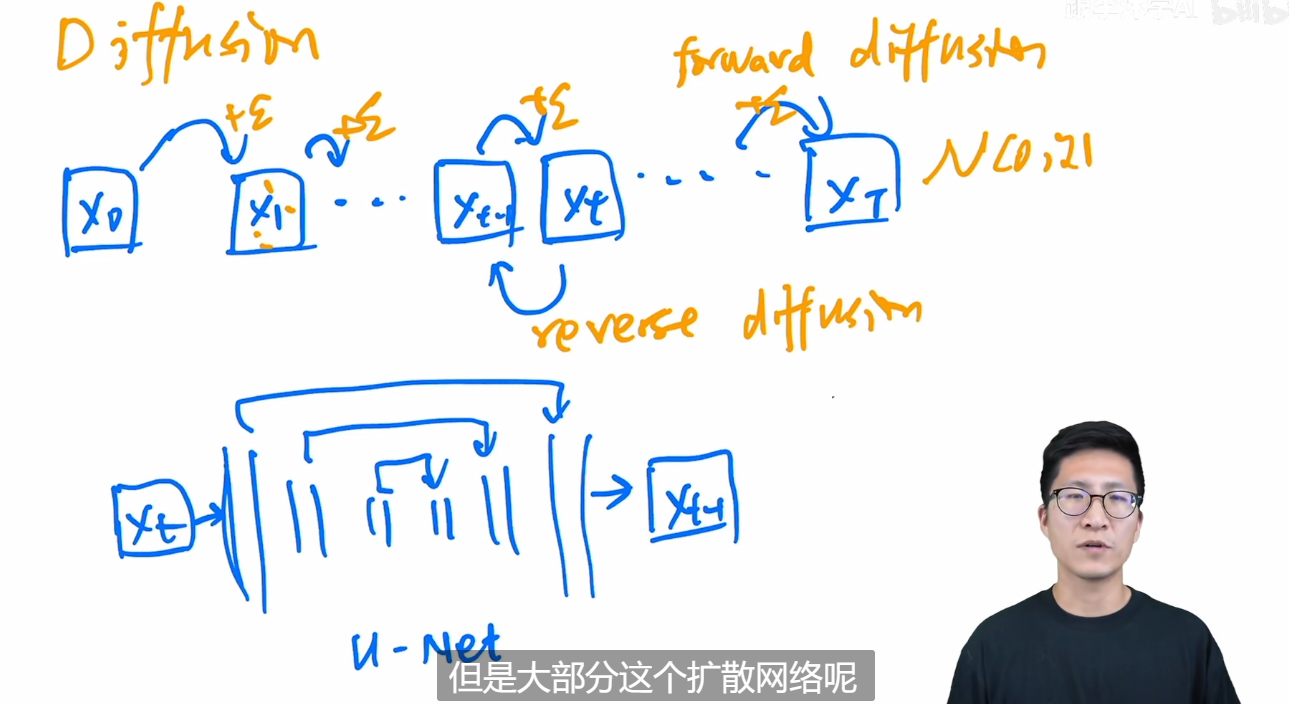 跟李沐学AI bilibili
Diffusion
forward diffusion
+ε +ε +ε +ε
X0 X1 ... Xt-1 Xt .... XT N(0,I)
reverse diffusion
Xt Xt-1
U-Net
但是大部分这个扩散网络呢